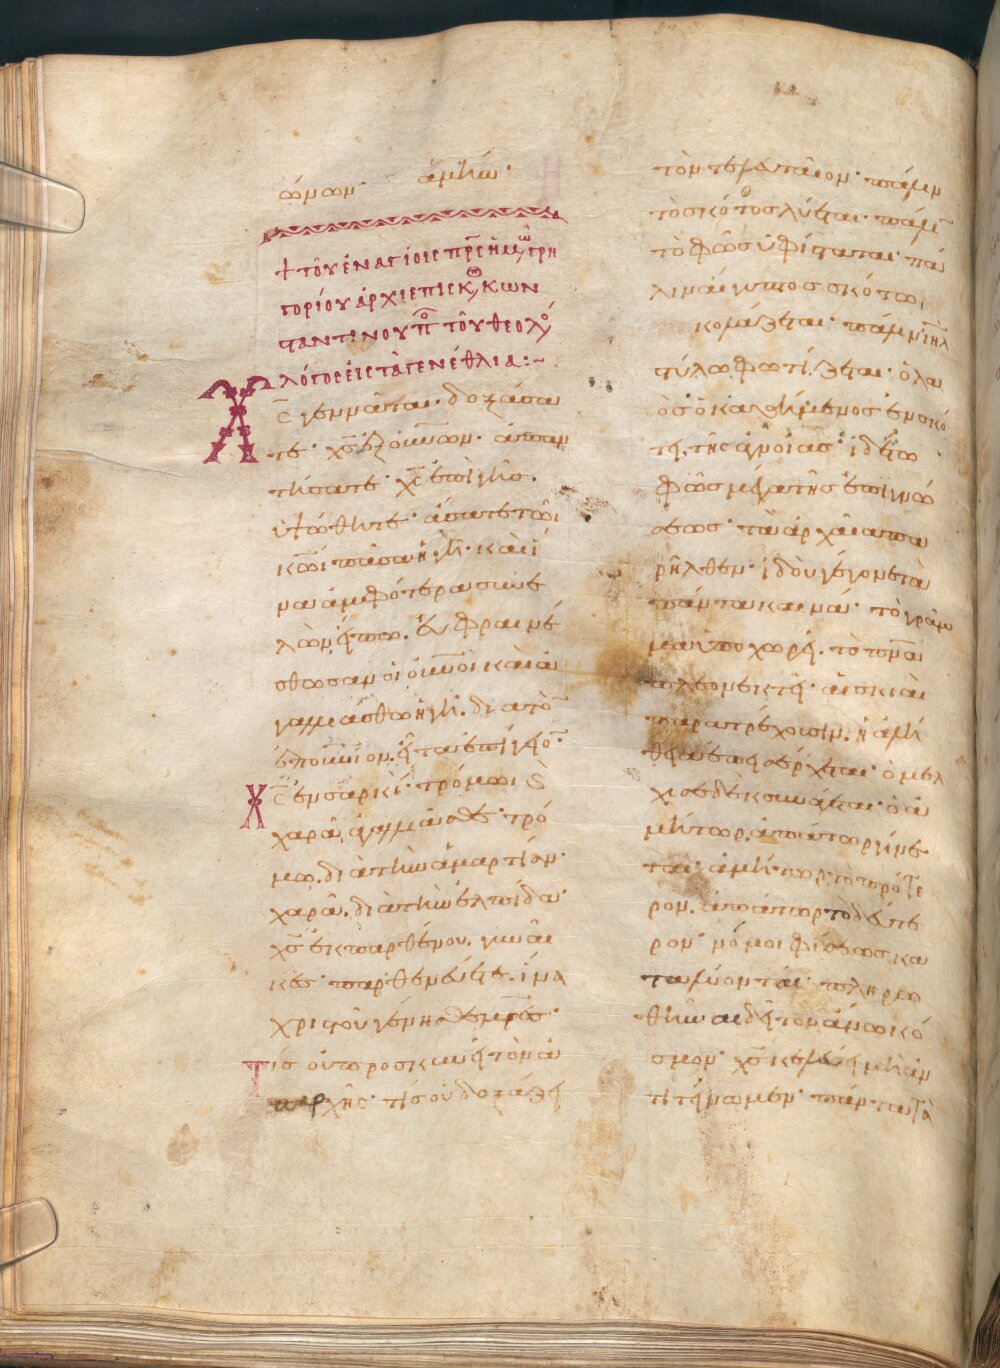 ώνων· ἀμήν·
+ τοῦ ἐν ἁγίοις πρ̅ς ἡμῶν γρη
γορίου ἀρχιεπισκ, κων
σταντινουπο τοῦ θεολό
λόγος εἰς τὰ γενέθλια :~
Χ̅ς γεννᾶται· δοξάσα
τε· χ̅ς ἐξ οὐν̅ων· ἀπαν
τήσατε· χ̅ς ἐπὶ γῆς·
ὑψώθητε· ἄσατε τῶι
κ̅ωι πᾶσα ἡ γῆ· καὶ ἵ
να ἀμφότερα συνε
λὼν εἴπω. εὐφραινέ
σθωσαν οἱ οὐν̅οὶ καὶ ἀ
γαλλιάσθω ἡ γῆ. διὰ τὸ̅
ἐπουν̅ιον. εἶτα ἐπίγειο̅·
Χ̅ς ἐν σαρκί· τρόμωι ϗ
χαρᾶ, ἀγαλλιᾶσθε· τρό
μω. διὰ τὴν ἁμαρτίαν·
χαρᾶ. διὰ τὴν ἐλπίδα·
χ̅ς ἐκ παρθένου. γυναῖ
κες· παρθενεύετε. ἵνα
χριστοῦ γένησθε μρ̅ες·
Τίς οὐ προσκυνεῖ τὸν ἀ
παρχῆς· τίς οὐ δοξάζει
τὸν τελευταῖον· πάλιν
τὸ σκότος λύεται· πάλιν
τὸ φῶς ὑφίσταται· πά
λιν αἴγυπτος σκότωι
κολάζεται· πάλιν ι̅η̅λ
στύλω φωτίζεται· ὁ λα
ὸς ὁ καθήμενος ἐν σκό
τει, τῆς ἀγνοίας· ἰδέτω
φῶς μέγα τῆς ἐπιγνώ
σεως· τὰ ἀρχαῖα πα
ρῆλθεν· ἰδοὺ γέγονε τὰ
πάντα καινά· τὸ γράμ
μα ὑποχωρεῖ. τὸ πν̅α
πλεονεκτεῖ· αἱ σκιαὶ
παρατρέχουσιν. ἡ ἀλή
θεια ἐπεισέρχεται· ὁ μελ
χισεδὲκ συνάγεται· ὁ ἀ
μήτωρ, ἀπάτωρ γίνε
ται· ἀμήτωρ τὸ πρότε
ρον. ἀπάτωρ τὸ δεύτε
ρον· νόμοι φύσεως κα
ταλύονται· πληρω
θῆναι δεῖ τὸν ἄνω κό
σμον· χ̅ς κελεύει μὴ ἀν
τιτείνωμεν· πάντα τὰ